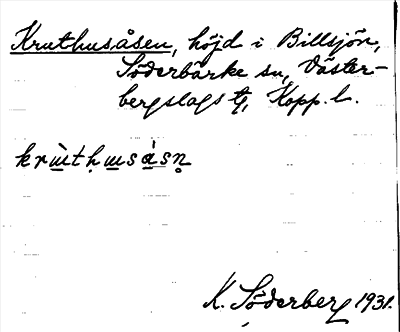 Kruthusåsen, höjd i Billsjön,
Söderbärke sn, Väster-
bergslags tg, Kopp. l.
krùthusásn̥
K. Söderberg 1931.